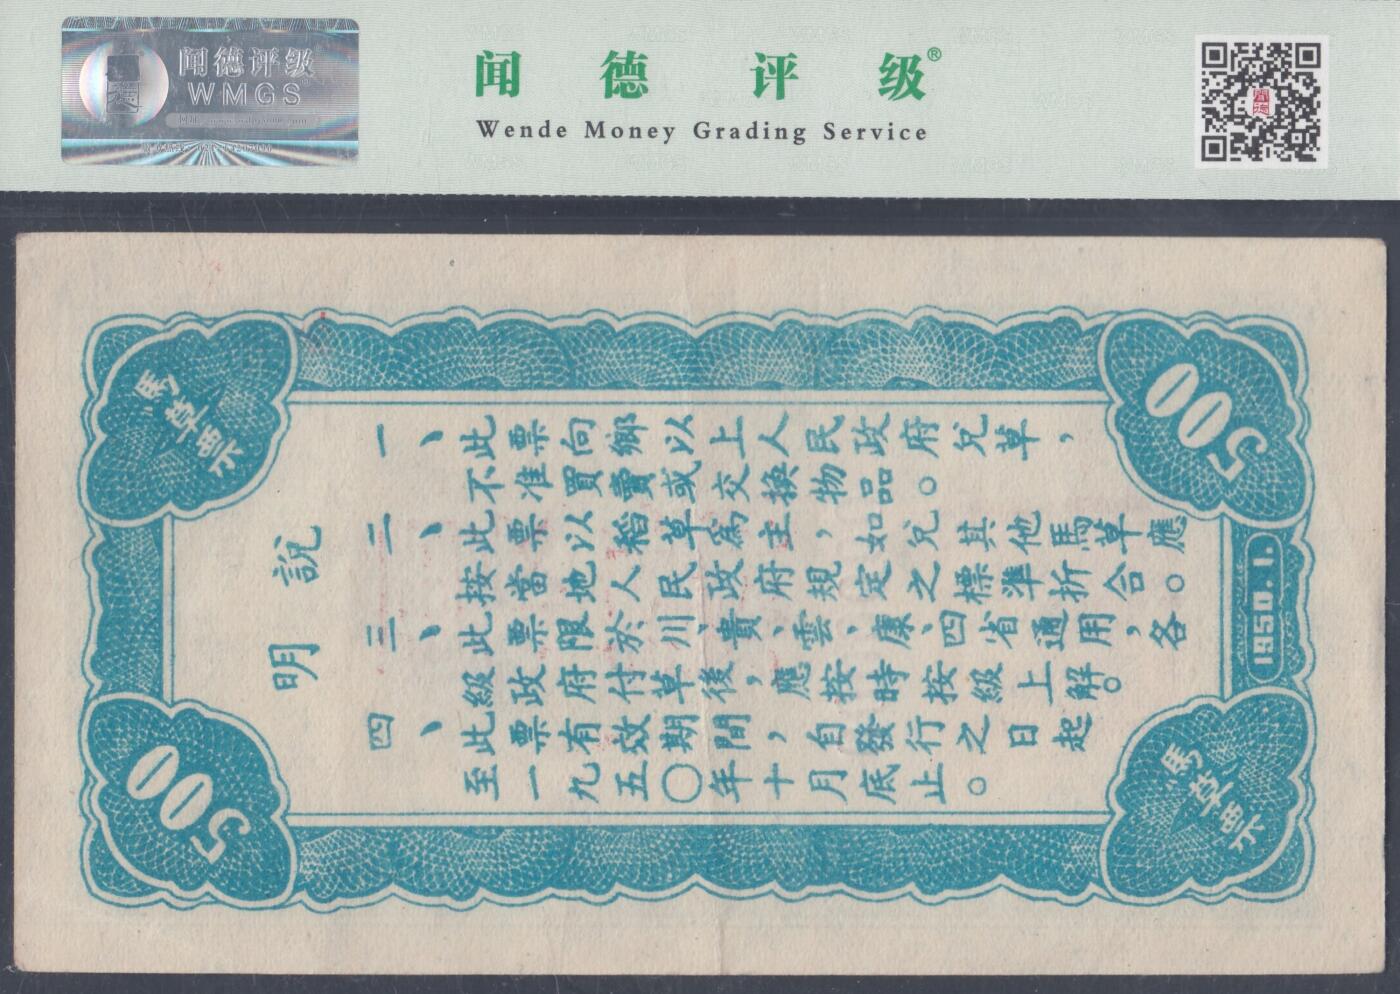 闻德评级
WMGS
闻德评级®
Wende Money Grading Service
馬草票
500
說明
一、此票向鄉以上人民政府兌草，
不准買賣或交換物品。
二、此票以稻草為主，如兌其他馬草應
按當地人民政府規定之標準折合。
三、此票限於川、貴、雲、康、四省通用，各
級政府付草後，應按時按級上解。
四、此票有效期間，自發行之日起
至一九五〇年十月底止。
1950.1.
500
馬草票